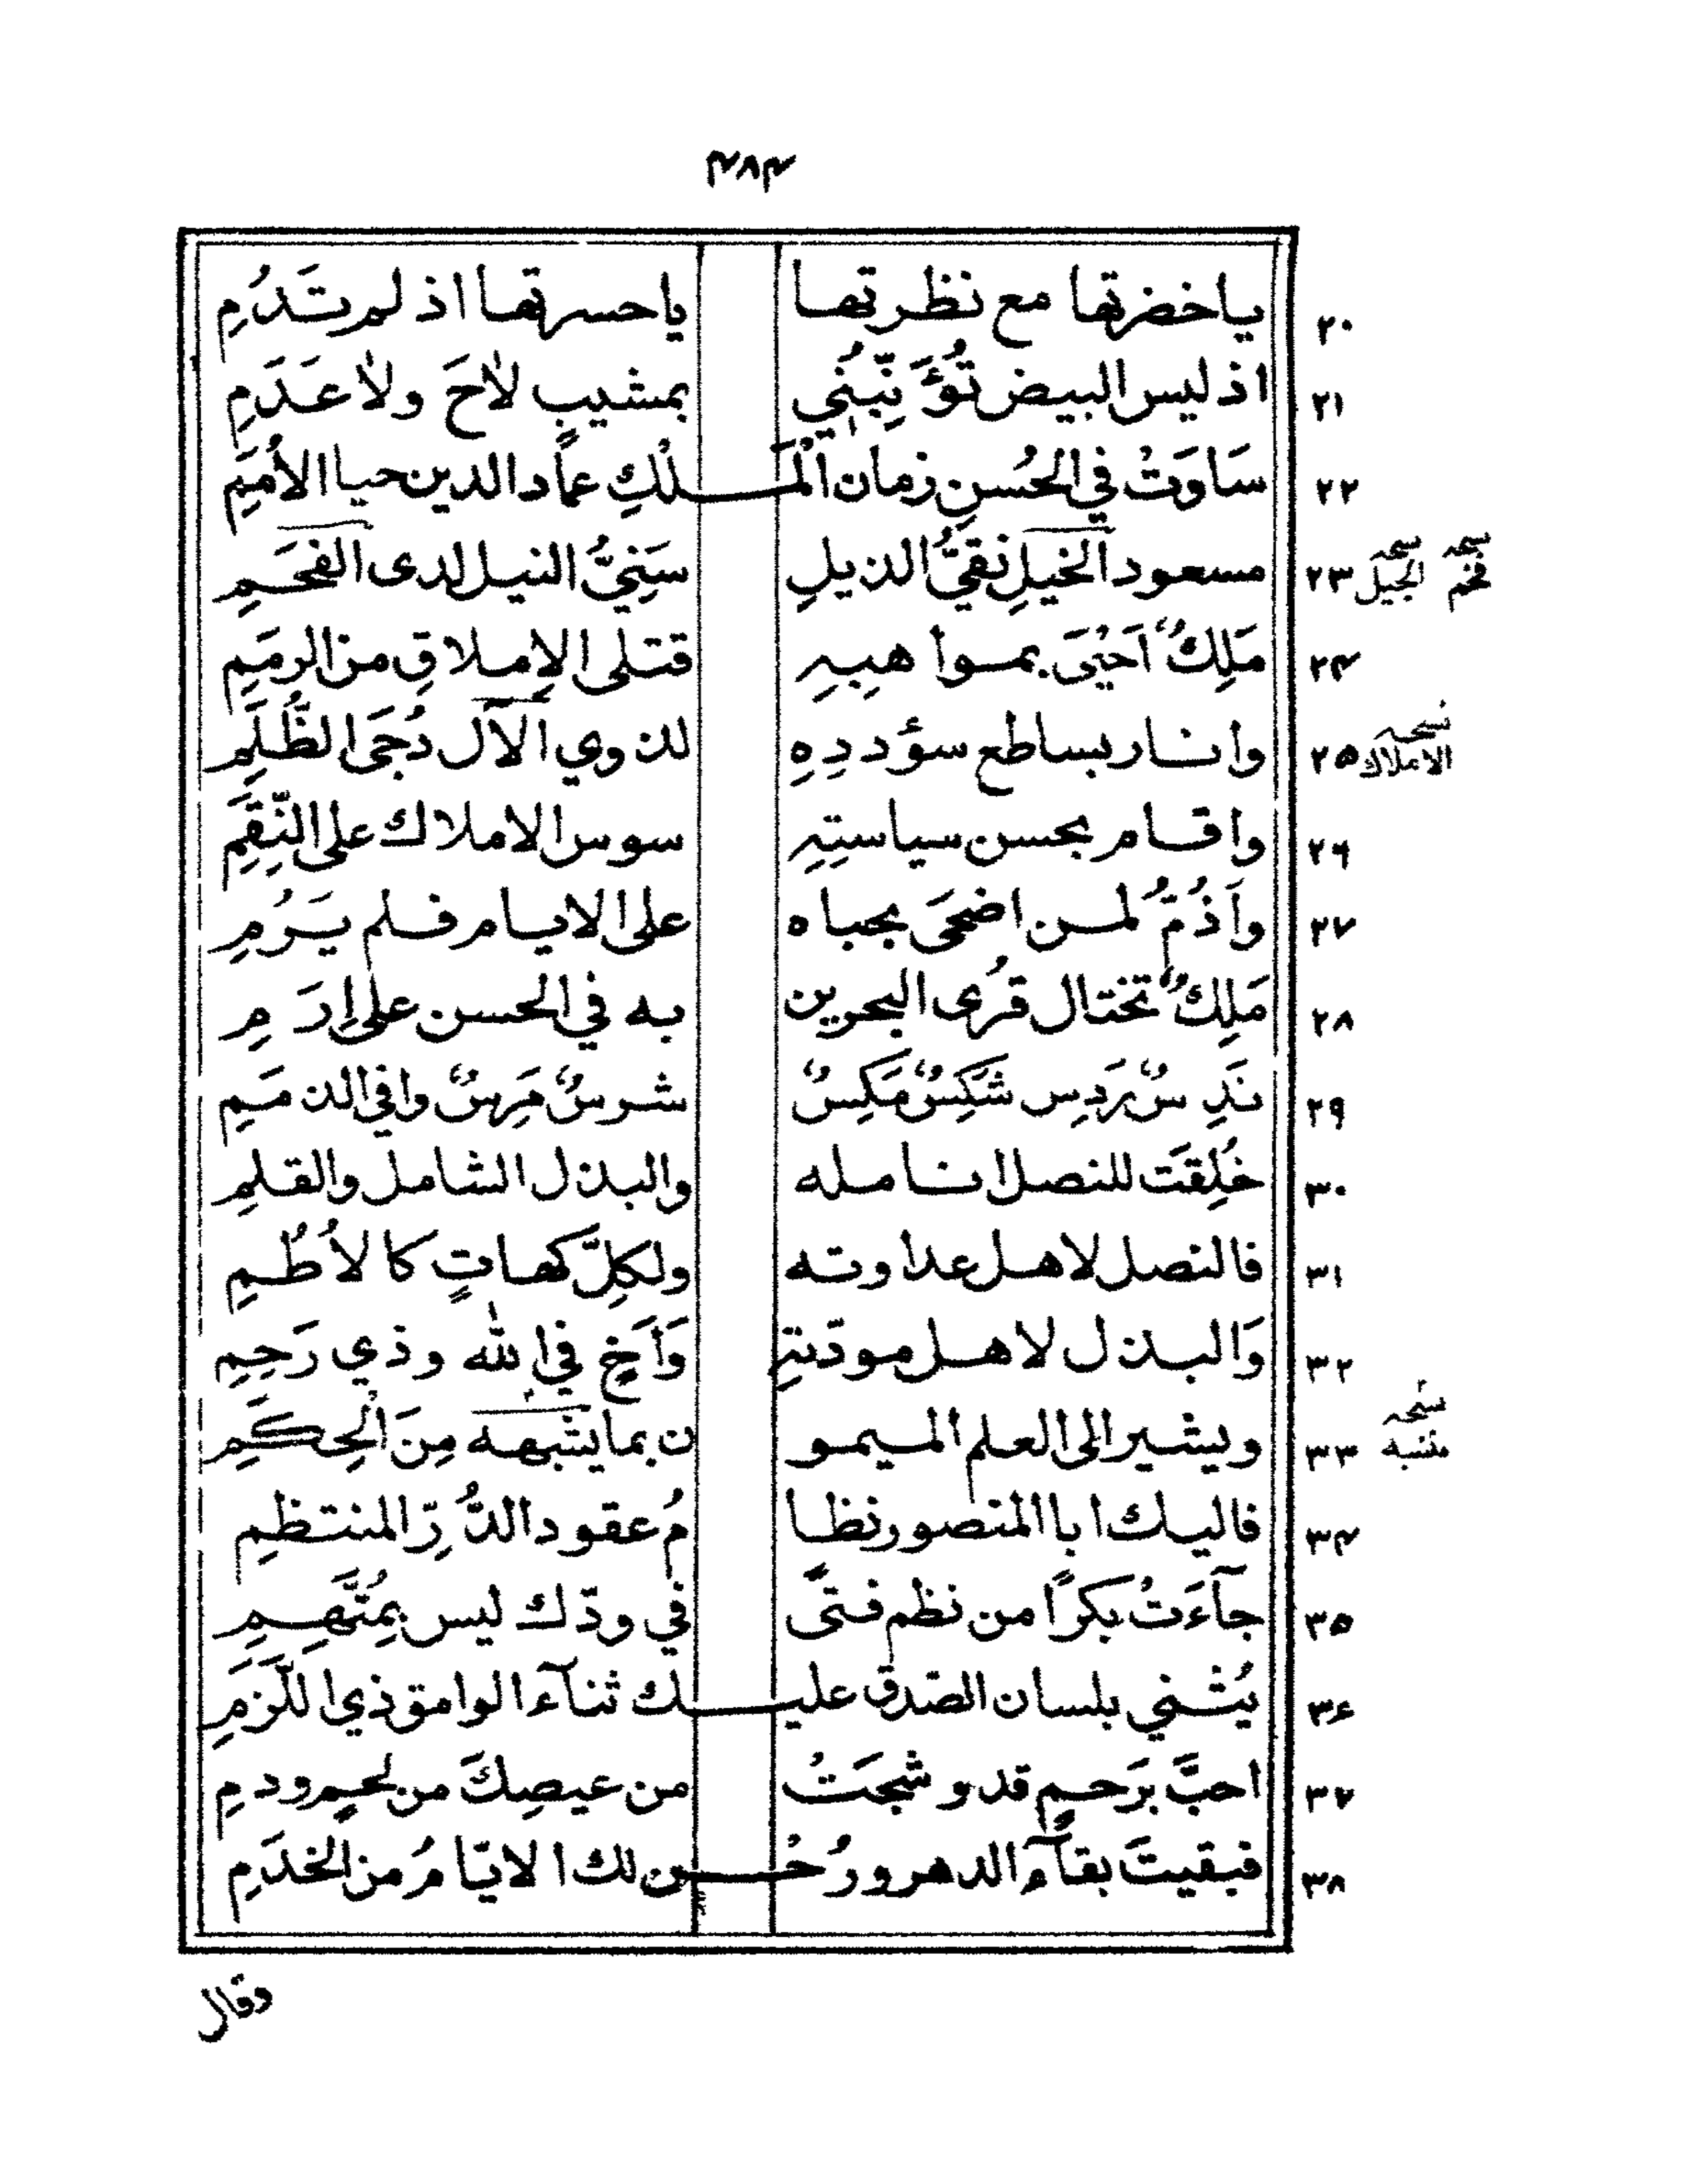 ۴۸۴
۲۰ ياخضرتها مع نظرتها ياحسرتها اذ لم تَدُمِ
۲۱ اذ ليس البيض تُؤَنِّبُنِي بمشيبٍ لاٰحَ ولاٰ عَدَمِ
۲۲ سَاوَتْ في الحُسنِ زمان الْمَلْكِ عمادِ الدين حيا الأُمَمِ
۲۳ مسعود الخيلِ نقيُّ الذيلِ سَنِيُّ النيل لدى الفحَمِ
نسخه الجيل
نسخه فخم
۲۴ مَلِكٌ اَحْيَى بمواهبِهِ قتلى الاِملاقِ من الرمَمِ
۲۵ وانار بساطع سؤددِهِ لذوي الآل دُجَى الظُّلَمِ
نسخه الاملاك
۲۶ واقام بحسن سياستِهِ سوس الاملاك على النِّقَمِ
۲۷ واَذُمُّ لمن اضحَى بجباه على الايام فلم يَرُمِ
۲۸ مَلِكٌ تختال قُرى البحرين به في الحسن على اِرَمِ
۲۹ نَدِسٌ رَدِس شَكِسٌ مَكِسٌ شرسٌ مَرِسٌ وافي الذمَمِ
۳۰ خُلِقَت للنصل انامله والبذل الشامل والقلمِ
۳۱ فالنصل لاهل عداوته ولكلِّ كهاتٍ كالأُطُمِ
۳۲ وَالبذل لاهل مودّتهِ وَاَخٍ في الله وذي رَحِمِ
۳۳ ويشير الى العلم الميمون بما يشبهه مِنَ الْحِكَمِ
نسخه مشبه
۳۴ فاليك ابا المنصور نظامُ عقود الدُّرِّ المنتظمِ
۳۵ جآءَتْ بكرًا من نظم فتىً في ودّك ليس بِمُتَّهِمِ
۳۶ يُثني بلسان الصّدق عليك ثنآء الوامق ذي اللَّزَمِ
۳۷ احبَّ بَرَحمٍ قد وشجَتْ من عيصِكَ من لحمٍ ودمِ
۳۸ فبقيتَ بقآء الدهر ورُحْن لك الايّامُ من الخدَمِ
وقال